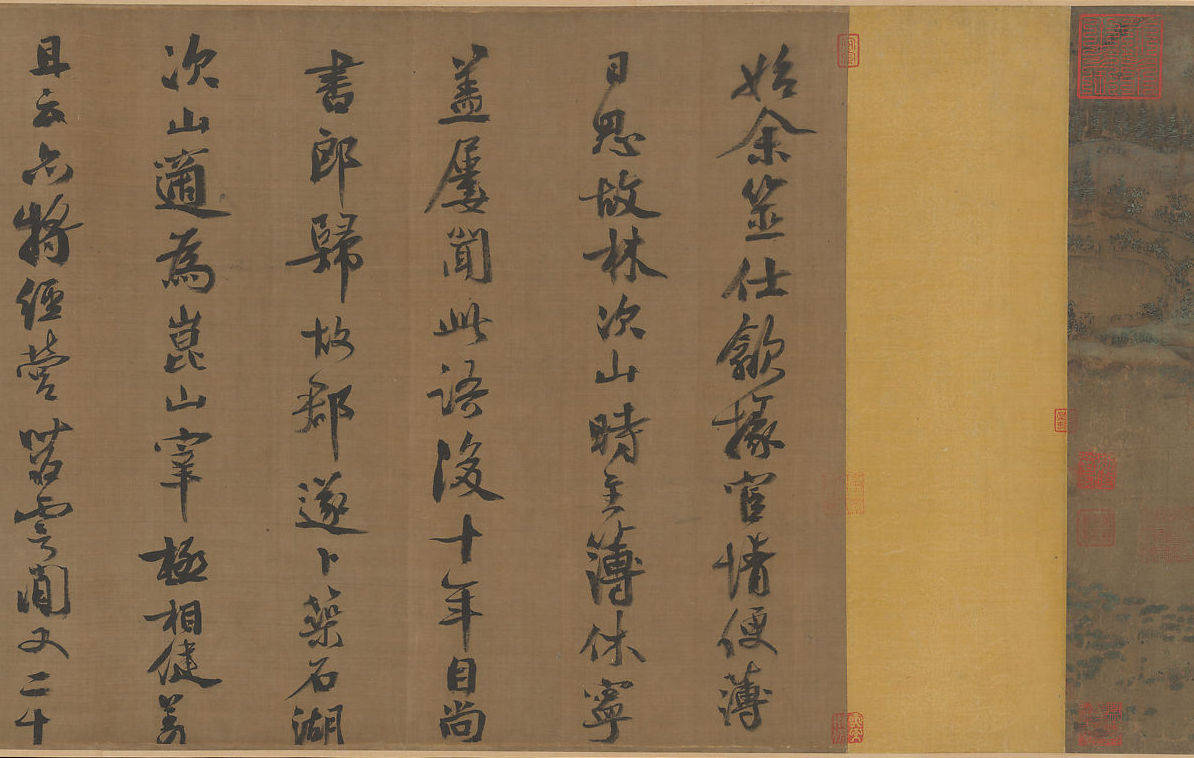 始余筮仕歙掾宦情便薄
日思故林次山時主薄休寧
盖屢聞此語後十年自尚
書郎歸故郡遂卜築石湖
次山適為崑山宰極相健羨
且云亦將經營苕霅間又二十